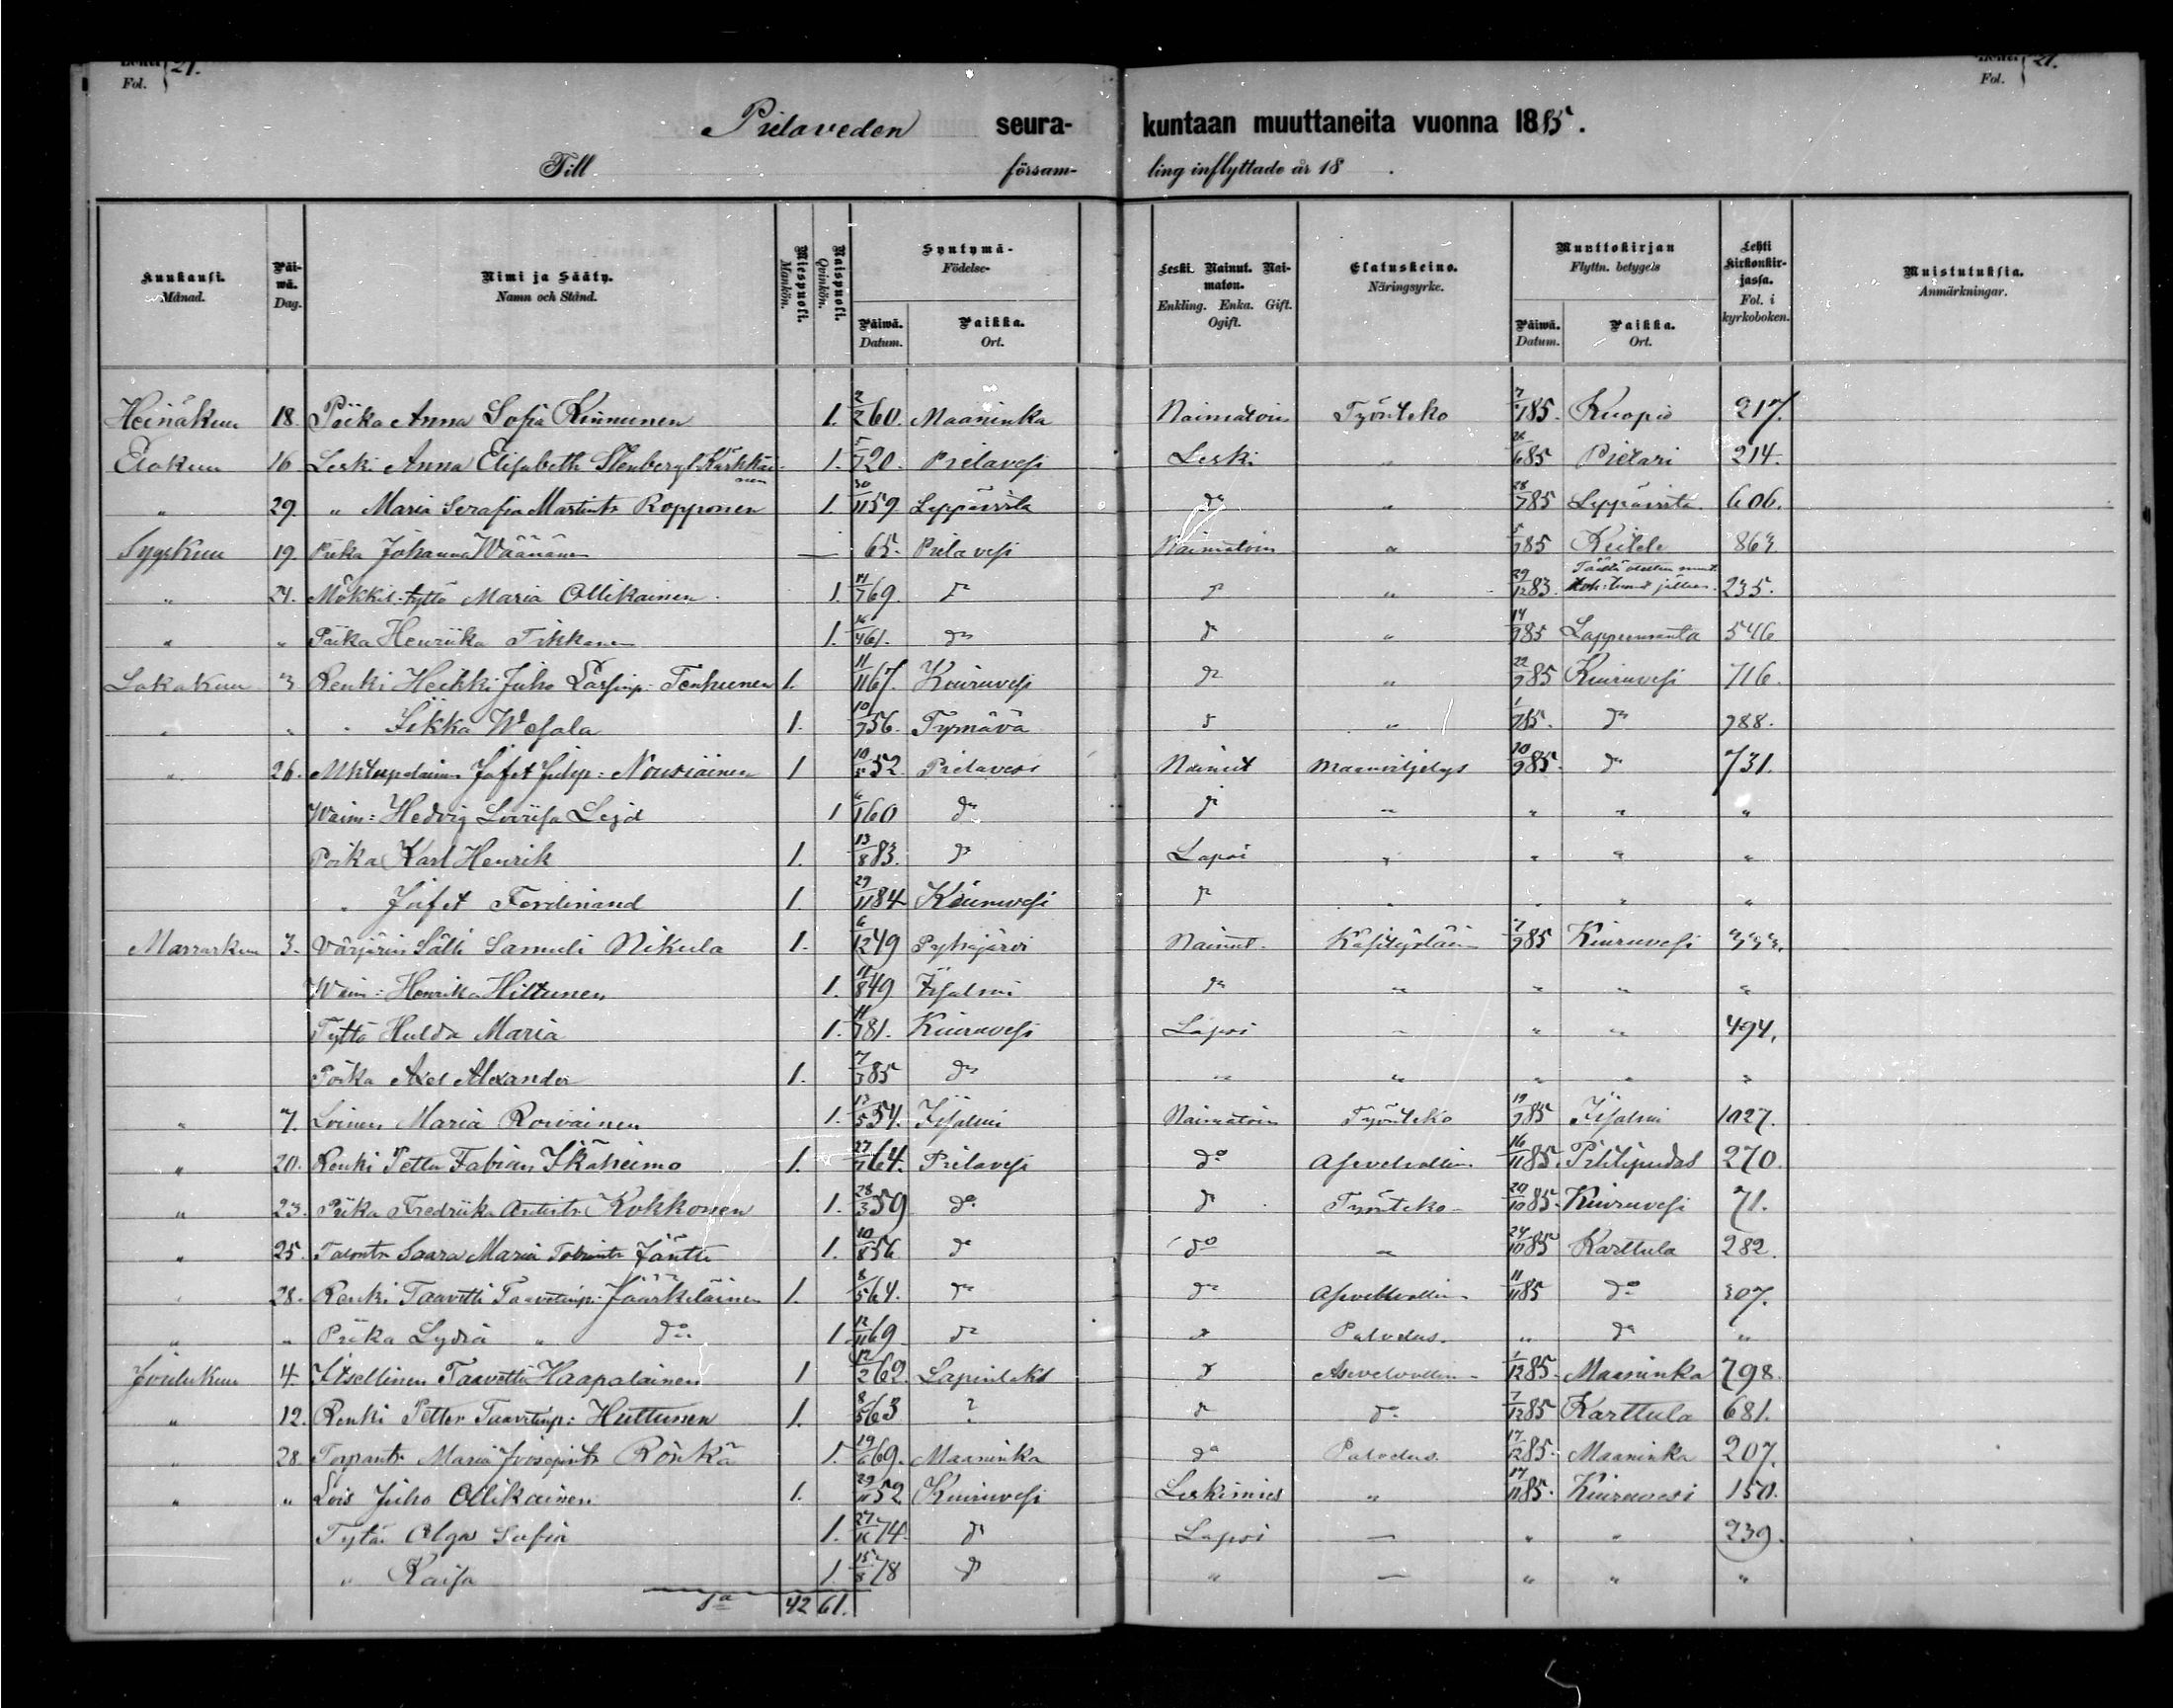 Fol. 21.
Fol. 21.
Pielaveden seurakuntaan muuttaneita vuonna 1885.
Till församling inflyttade år 18 .
Kuukausi. Månad.
Päiwä. Dag.
Nimi ja Sääty. Namn och Stånd.
Miespuoli. Mankön.
Naispuoli. Qvinkön.
Syntymä- Födelse-
Päiwä. Datum.
Paikka. Ort.
Leski. Nainut. Naimaton. Enkling. Enka. Gift. Ogift.
Elatuskeino. Näringsyrke.
Muuttokirjan Flyttn. betygels
Päiwä. Datum.
Paikka. Ort.
Lehti Kirkonkirjassa. Fol. i kyrkoboken.
Muistutuksia. Anmärkningar.
Heinäkuu 18. Piika Anna Sofia Kinnunen 1. 2/2 60. Maaninka Naimatoin Työnteko 7/7 85. Kuopio 217.
Elokuu 16 Leski Anna Elisabeth Stenberg Kärkkäinen 1. 5/7 20. Pielavesi Leski " 26/6 85 Pietari 214.
" 29. " Maria Serafia Martintr Ropponen 1. 30/11 59 Leppävirta do " 28/7 85 Leppävirta 606.
Syyskuu 19. Piika Johanna Väänänen — 65. Pielavesi Naimatoin " 5/9 85 Keitele 863
" 24. Mökkil. tyttö Maria Ollikainen 1. 14/7 69. do do " 29/12 83. 235.
" " Piika Henriika Tikkanen 1. 16/4 61. do do " 14/9 85 Lappeenranta 546
Lokakuu 3 Renki Heikki Juho Lassinp. Tenhunen 1. 11/11 67. Kiuruvesi do " 22/9 85 Kiuruvesi 716.
" " " Sikka Vesala 1. 10/9 56. Tyrnävä do " 1/9 85. do 988.
" 26. Jafet Juhop: Nousiainen 1 10/5 52 Pielavesi Nainut Maanviljelys 10/9 85. do 731.
Vaim: Hedvig Loviisa Lejd 1 6/1 60 do do " " " "
Poika Karl Henrik 1. 13/8 83. do Lapsi " " " "
" Jafet Ferdinand 1. 29/11 84 Kiuruvesi do " " " "
Marraskuu 3. Värjärin Sälli Samuli Nikula 1. 6/12 49 Pyhäjärvi Nainut Käsityöläin 7/9 85 Kiuruvesi 333.
Vaim: Henrika Hiltunen 1. 11/8 49 Iisalmi do " " " "
Tyttö Hulda Maria 1. 11/7 81. Kiuruvesi Lapsi " " " 494.
Poika Axel Alexander 1. 7/3 85 do " " " " "
" 7. Loinen Maria Roivainen 1. 13/5 54. Iisalmi Naimatoin Työnteko 19/9 85 Iisalmi 1027.
" 20. Renki Petter Fabian Ikäheimo 1. 27/7 64. Pielavesi do Asevelvollin. 16/11 85. Pihtipudas 270.
" 23. Piika Fredriika Antintr Kokkonen 1. 28/3 59 do do Työnteko 20/10 85. Kiuruvesi 71.
" 25. Talontr Saara Maria Jäntti 1. 10/8 56 do do " 24/10 85 Karttula 282.
" 28. Renki Taavetti Taavetinp: Jääskeläinen 1. 8/5 64. do do Asevelvollin 11/11 85 do 307.
" " Piika Lydia " do 1 12/11 69 do do Palvelus. " do "
Joulukuu 4. Itsellinen Taavetti Haapalainen 1 12/2 62. Lapinlaks do Asevelvollin 1/12 85. Maaninka 798.
" 12. Renki Petter Taavetinp: Huttunen 1. 8/5 63 ? do do 7/12 85 Karttula 681.
" 28 Torpantr Maria Joosepintr Rönkä 1. 19/6 69. Maaninka do Palvelus 17/12 85. Maaninka 207.
" " Lois Juho Ollikainen 1. 29/11 52 Kiuruvesi Leskimies " 17/11 85. Kiuruvesi 150.
Tytär Olga Sofia 1. 27/10 74 do Lapsi — " " 239.
" Kaisa 1 15/8 78 do " — " " "
Sa 42 61.